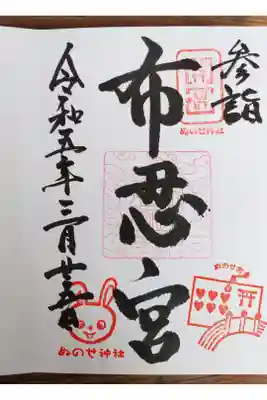 参詣
ぬのせ神社
布忍宮
令和五年三月廿五日
ぬのせ神社